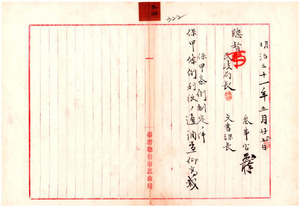 明治三十一年五月廿七日
参事官
文書課長
總督
民政局長
保甲条例制定ノ件
保甲條例別紙ノ通調査仰高裁
臺灣總督府民政局